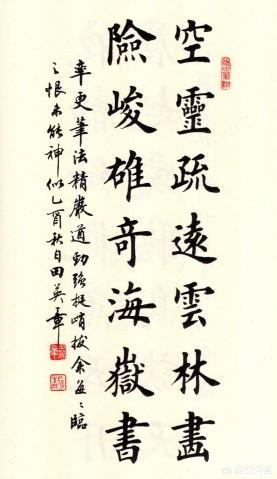 空靈疏遠雲林畫
險峻雄奇海嶽書
率更筆法精嚴遒勁強挺峭拔余每每臨
之恨未能神似乙酉秋日田英章